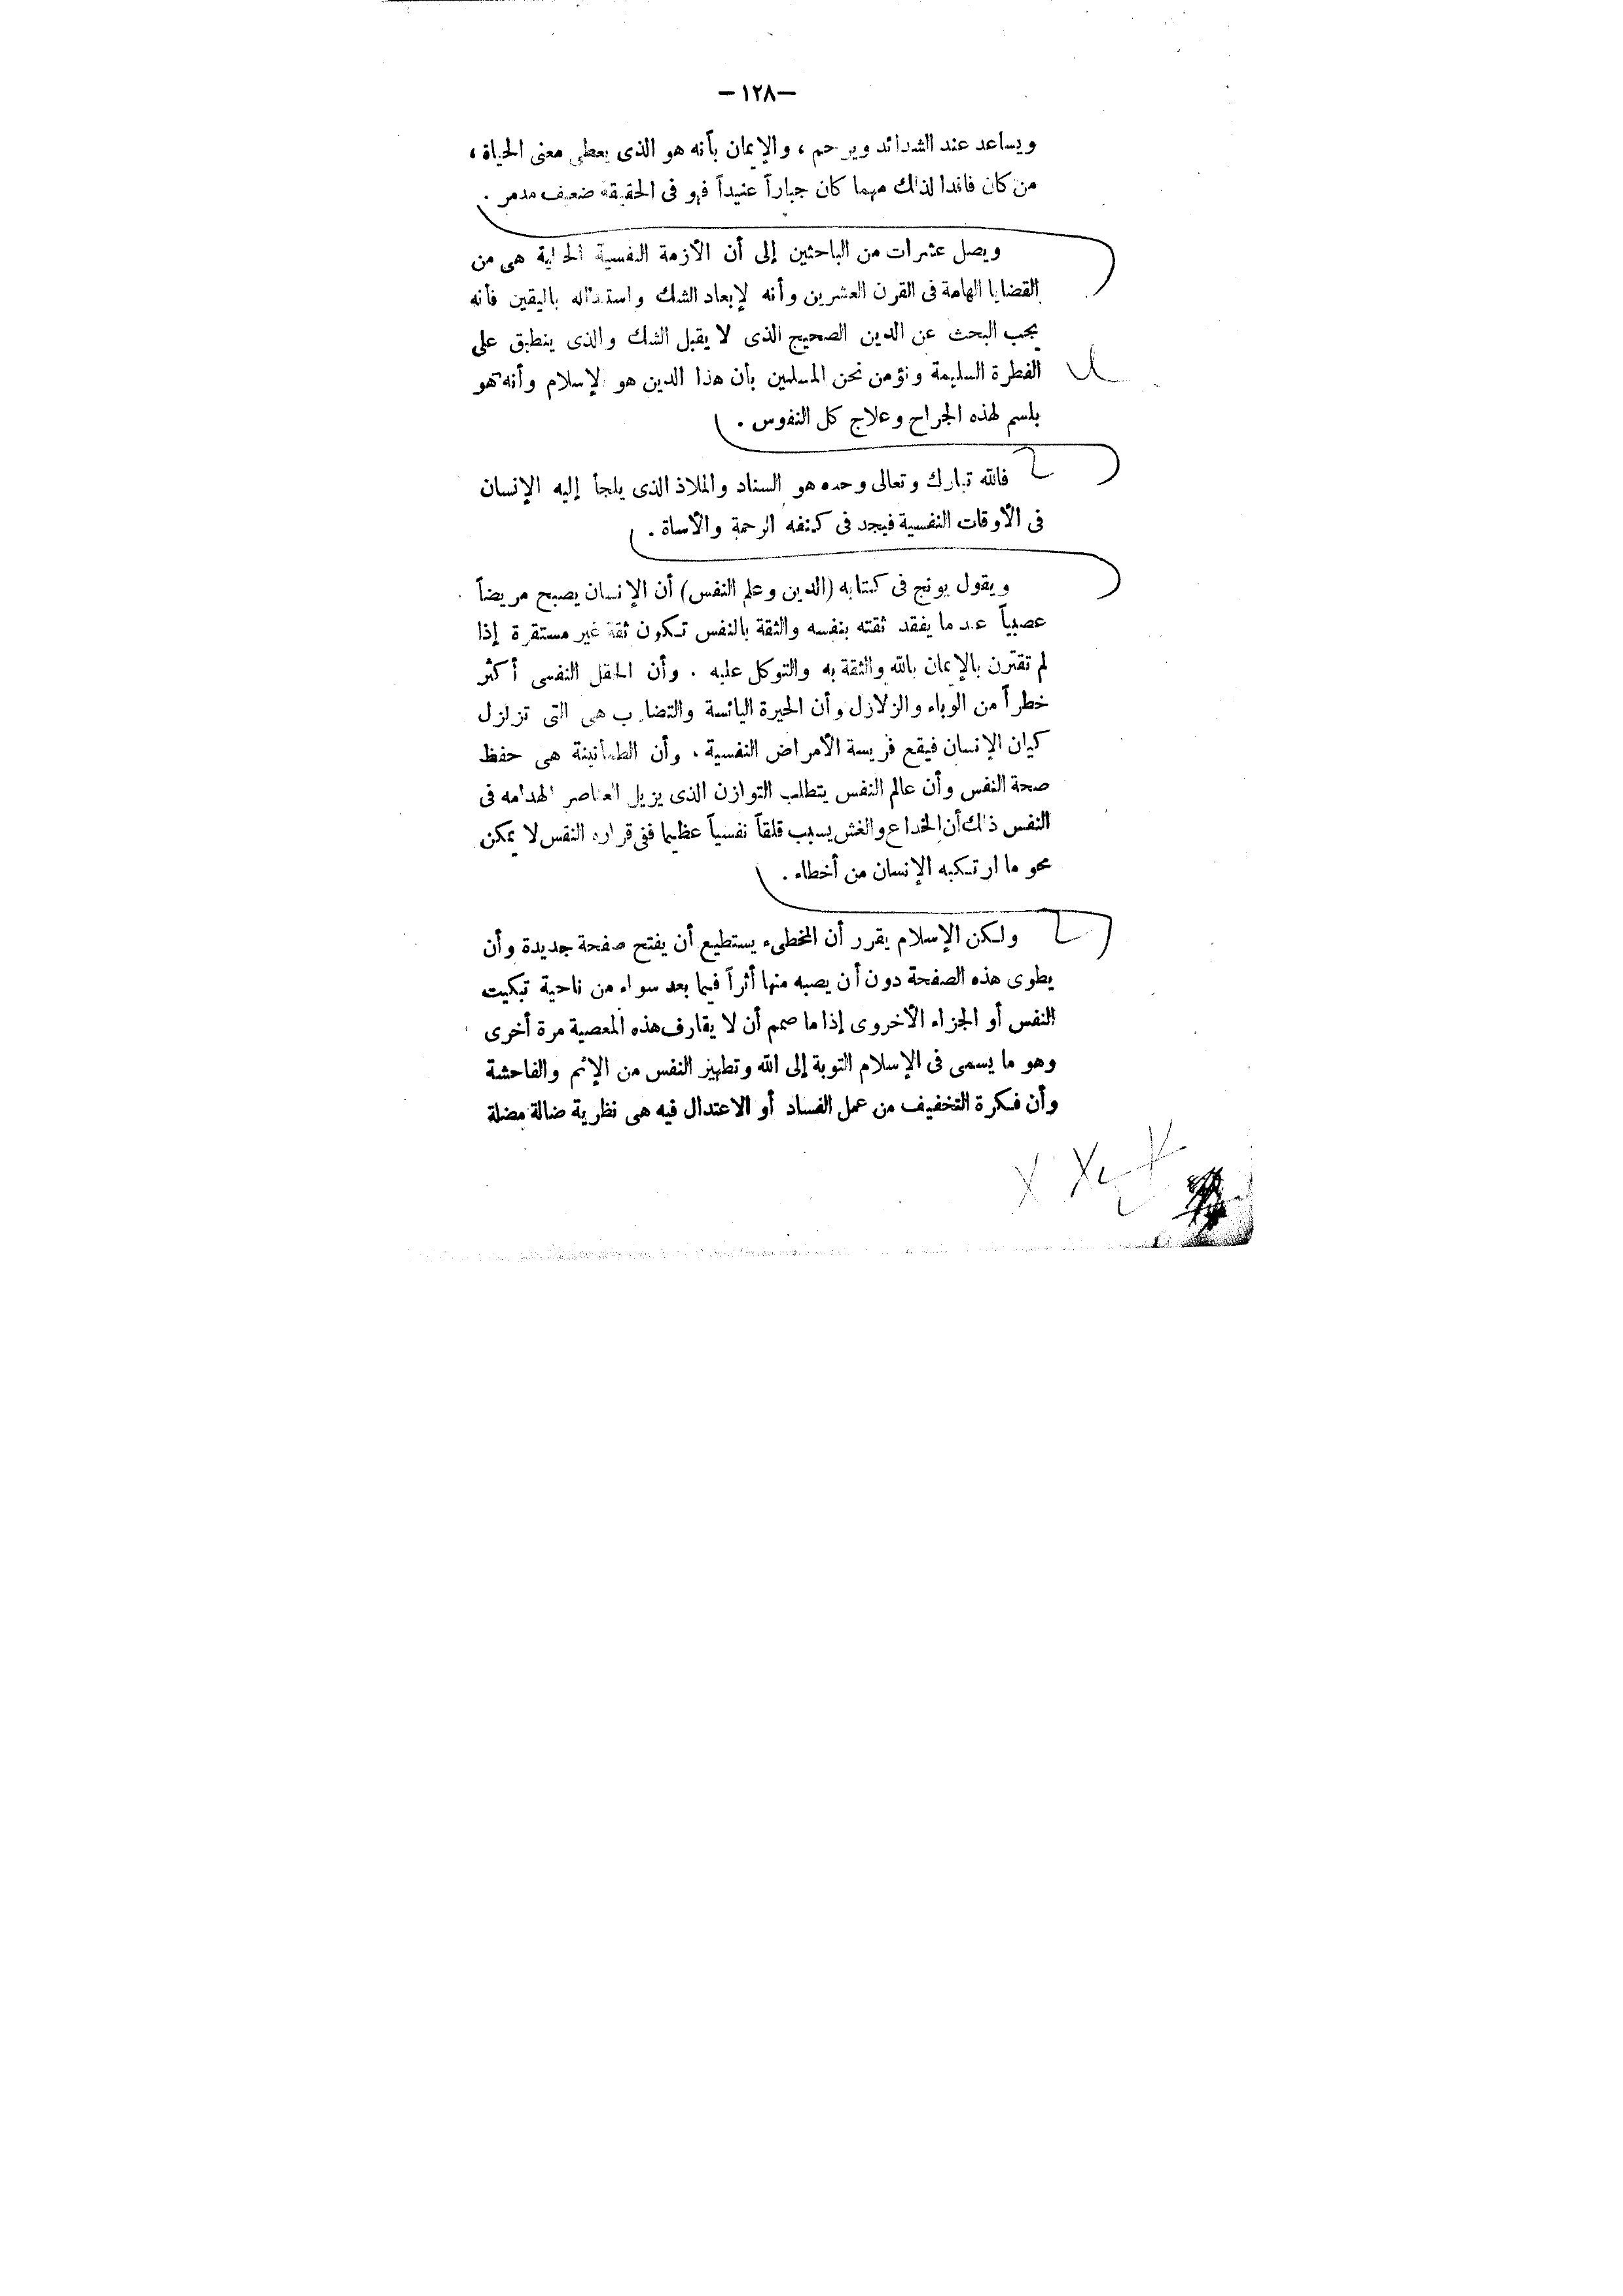 —١٢٨—
ويساعد عند الشدائد ويرحم ، والإيمان بأنه هو الذى يعطى معنى الحياة ،
من كان فاقدا لذلك مهما كان جباراً عنيداً فهو فى الحقيقة ضعيف مدمر .
ويصل عشرات من الباحثين إلى أن الأزمة النفسية الحالية هى من
القضايا الهامة فى القرن العشرين وأنه لإبعاد الشك واستبداله باليقين فأنه
يجب البحث عن الدين الصحيح الذى لا يقبل الشك والذى ينطبق على
الفطرة السليمة ونؤمن نحن المسلمين بأن هذا الدين هو الإسلام وأنه هو
بلسم لهذه الجراح وعلاج كل النفوس .
فالله تبارك وتعالى وحده هو السناد والملاذ الذى يلجأ إليه الإنسان
فى الأوقات النفسية فيجد فى كنفه الرحمة والأساة .
ويقول يونج فى كتابه (الدين وعلم النفس) أن الإنسان يصبح مريضاً
عصبياً عندما يفقد ثقته بنفسه والثقة بالنفس تكون ثقة غير مستقرة إذا
لم تقترن بالإيمان بالله والثقة به والتوكل عليه . وأن الحقل النفسى أكثر
خطراً من الوباء والزلازل وأن الحيرة اليائسة والتضارب هى التى تزلزل
كيان الإنسان فيقع فريسة الأمراض النفسية . وأن الطمأنينة هى حفظ
صحة النفس وأن عالم النفس يتطلب التوازن الذى يزيل العناصر الهدامه فى
النفس ذلك أن الخداع والغش يسبب قلقاً نفسياً عظيما ففى قراره النفس لا يمكن
محو ما ارتكبه الإنسان من أخطاء .
ولكن الإسلام يقرر أن المخطىء يستطيع أن يفتح صفحة جديدة وأن
يطوى هذه الصفحة دون أن يصبه منها أثراً فيما بعد سواء من ناحية تبكيت
النفس أو الجزاء الأخروى إذا ما صمم أن لا يقارف هذه المعصية مرة أخرى
وهو ما يسمى فى الإسلام التوبة إلى الله وتطهير النفس من الإثم والفاحشة
وأن فكرة التخفيف من عمل الفساد أو الاعتدال فيه هى نظرية ضالة مضلة